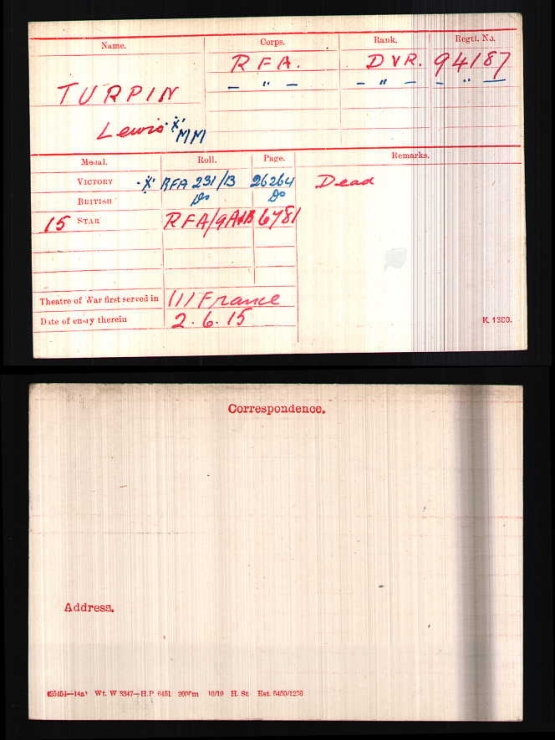 Name. Corps. Rank. Regtl. No.
R F A. DVR. 94187
TURPIN – " – – " – – " –
Lewis 'X' MM
Medal. Roll. Page. Remarks.
VICTORY 'X' RFA 231/B 26264 Dead
BRITISH Do Do
15 STAR RFA/9A 6781
Theatre of War first served in (1) France
Date of entry therein 2.6.15
K. 1380.
Correspondence.
Address.
Wt. W 5347—H.P. 10/19 H. St.